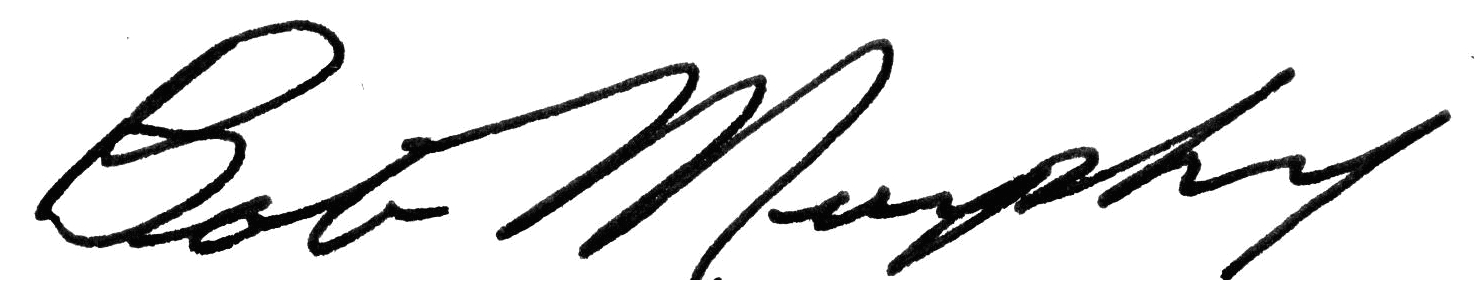 Bob Murphy